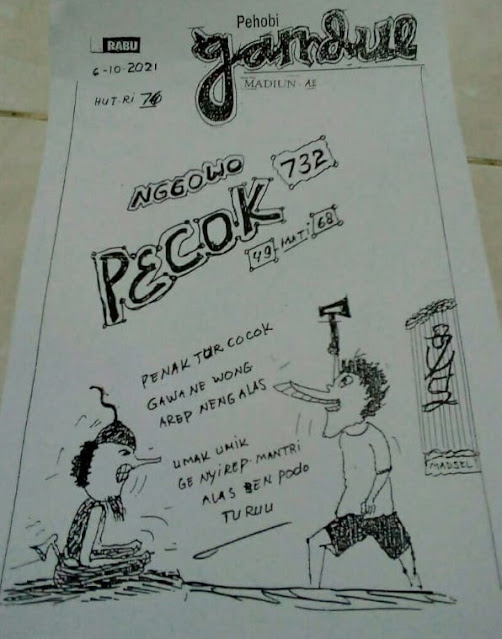 Pehobi
gandul
RABU
6-10-2021
MADIUN - AE
HUT-RI 76
NGGOWO
732
PECOK
49 MATI 68
PENAK TUR COCOK
GAWANE WONG
AREP NENG ALAS
UMAK UMIK
GE NYIREP MANTRI
ALAS BEN PODO
TURUU
MADSEL